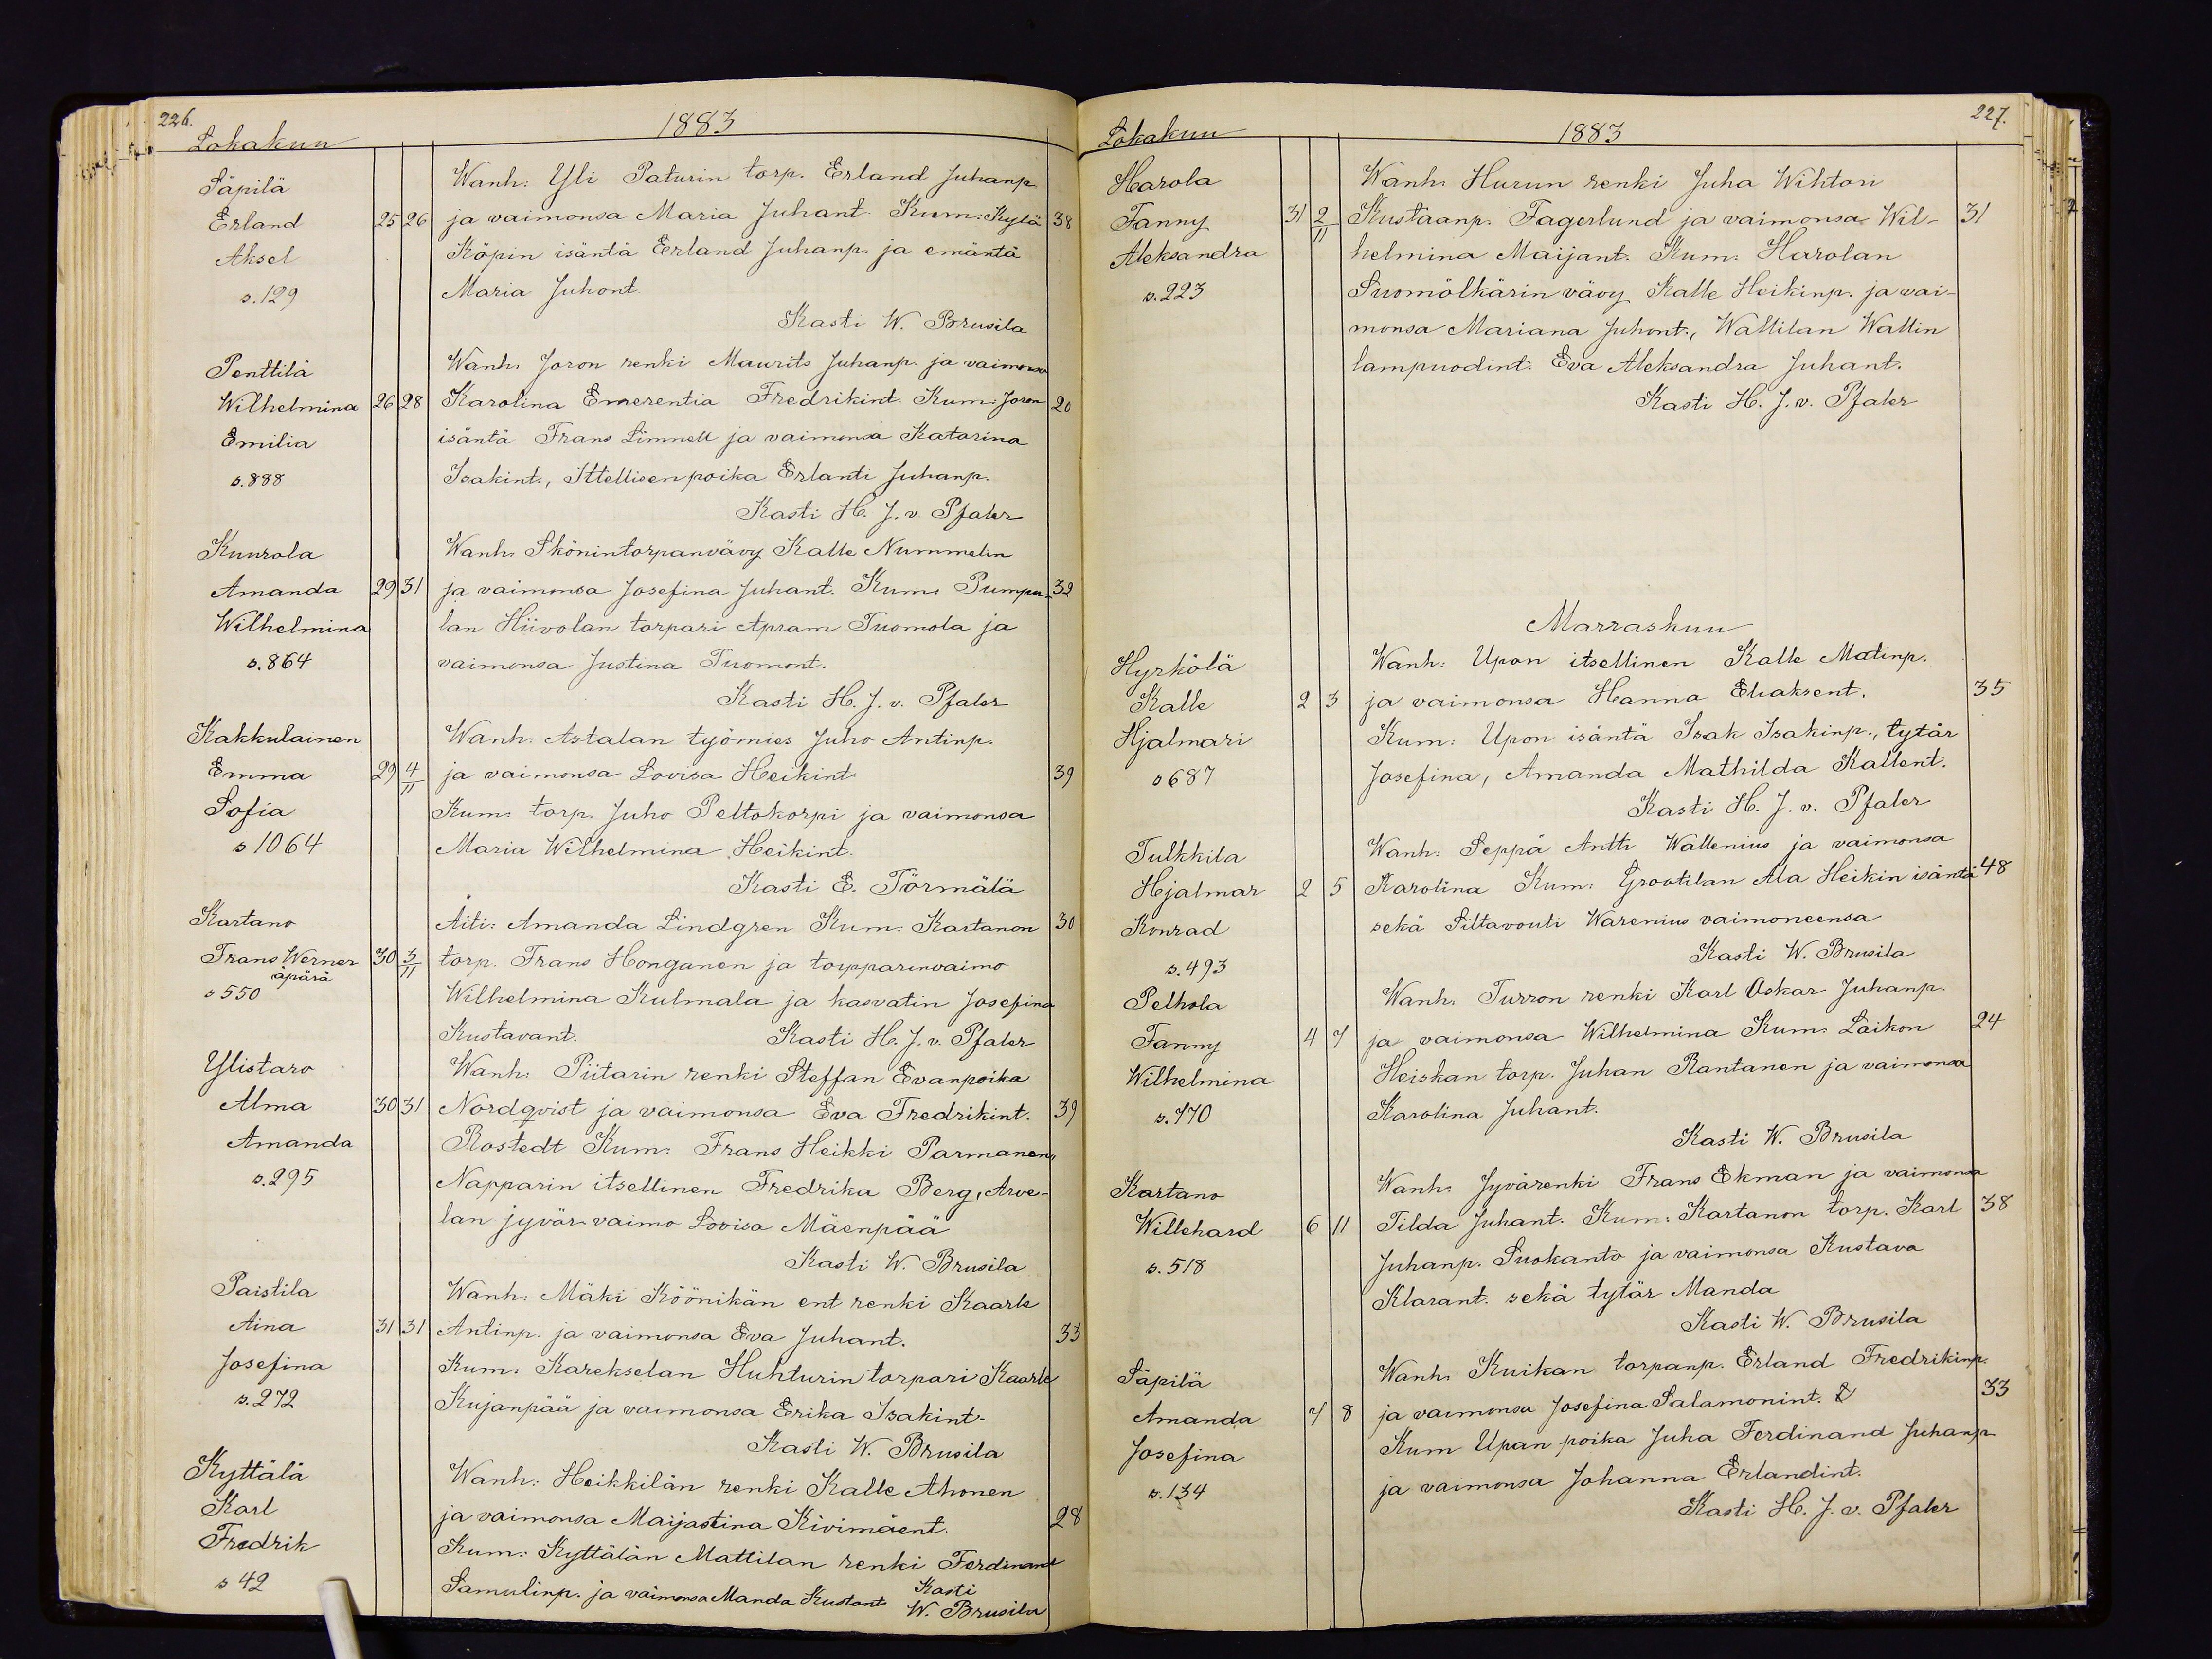 226.
Lokakuu
1883
Säpilä
Erland 25 26
Aksel
s.129
Wanh: Yli Paturin torp. Erland Juhanp.
ja vaimonsa Maria Juhant. Kum: Kylä 38
Köpin isäntä Erland Juhanp. ja emäntä
Maria Juhont.
Kasti W. Brusila
Penttilä
Wilhelmina 26 28
Emilia
s.888
Wanh: Joron renki Maurits Juhanp. ja vaimonsa
Karolina Emerentia Fredrikint. Kum: Joron 20
isäntä Frans Limnell ja vaimonsa Katarina
Isakint., Ittellisenpoika Erlanti Juhanp.
Kasti H. J. v. Pfaler
Kuurola
Amanda 29 31
Wilhelmina
s.864
Wanh: Skönintorpanvävy Kalle Nummelin
ja vaimonsa Josefina Juhant. Kum: Pumpu- 32
lan Hiivolan torpari Apram Tuomola ja
vaimonsa Justina Tuomont.
Kasti H. J. v. Pfaler
Kakkulainen
Emma 29 4/11
Sofia
s 1064
Wanh: Astalan työmies Juho Antinp.
ja vaimonsa Lovisa Heikint. 39
Kum: torp. Juho Peltokorpi ja vaimonsa
Maria Wilhelmina Heikint.
Kasti E. Törmälä
Kartano
Frans Werner 30 3/11
äpärä
s 550
Äiti: Amanda Lindgren Kum: Kartanon 30
torp. Frans Honganen ja torpparinvaimo
Wilhelmina Kulmala ja kasvatin Josefina
Kustavant. Kasti H. J. v. Pfaler
Ylistaro
Alma 30 31
Amanda
s.295
Wanh: Piitarin renki Steffan Evanpoika
Nordqvist ja vaimonsa Eva Fredrikint. 39
Rostedt Kum: Frans Heikki Parmanen,
Napparin itsellinen Fredrika Berg, Arve-
lan jyvär-vaimo Lovisa Mäenpää
Kasti W. Brusila
Paistila
Aina 31 31
Josefina
s.272
Wanh: Mäki Köönikän ent renki Kaarle
Antinp. ja vaimonsa Eva Juhant. 33
Kum: Karekselan Huhturin torpari Kaarle
Kujanpää ja vaimonsa Erika Isakint.
Kasti W. Brusila
Kyttälä
Karl
Fredrik
s 42
Wanh: Heikkilän renki Kalle Ahonen
ja vaimonsa Maijastina Kivimäent. 28
Kum: Kyttälän Mattilan renki Ferdinand
Samulinp. ja vaimonsa Manda Kustant Kasti
W. Brusila
227.
Lokakuu
1883
Harola
Fanny 31 2/11
Aleksandra
s.223
Wanh: Hurun renki Juha Wihtori
Kustaanp. Fagerlund ja vaimonsa Wil- 31
helmina Maijant. Kum: Harolan
Suomölkärin vävy Kalle Heikinp. ja vai-
monsa Mariana Juhont., Wallilan Wallin
lampuodint. Eva Aleksandra Juhant.
Kasti H. J. v. Pfaler
Marraskuu
Hyrkölä
Kalle 2 3
Hjalmari
s 687
Wanh: Upon itsellinen Kalle Matinp.
ja vaimonsa Hanna Eliaksent. 35
Kum: Upon isäntä Isak Isakinp., tytär
Josefina, Amanda Mathilda Kallent.
Kasti H. J. v. Pfaler
Tulkkila
Hjalmar 2 5
Konrad
s.493
Wanh: Seppä Antti Wallenius ja vaimonsa
Karolina Kum: Grootilan Ala Heikin isäntä 48
sekä Siltavouti Warenius vaimoneensa
Kasti W. Brusila
Pelhola
Fanny 4 7
Wilhelmina
s.770
Wanh: Turron renki Karl Oskar Juhanp.
ja vaimonsa Wilhelmina Kum: Laikon 24
Heiskan torp. Juhan Rantanen ja vaimonsa
Karolina Juhant.
Kasti W. Brusila
Kartano
Willehard 6 11
s.518
Wanh: Jyvärenki Frans Ekman ja vaimonsa
Tilda Juhant. Kum: Kartanon torp. Karl 38
Juhanp. Suokanto ja vaimonsa Kustava
Klarant. sekä tytär Manda
Kasti W. Brusila
Säpilä
Amanda 7 8
Josefina
s.134
Wanh: Kuikan torpanp. Erland Fredrikinp.
ja vaimonsa Josefina Salamonint. 33
Kum Upan poika Juha Ferdinand Juhanp
ja vaimonsa Johanna Erlandint.
Kasti H. J. v. Pfaler